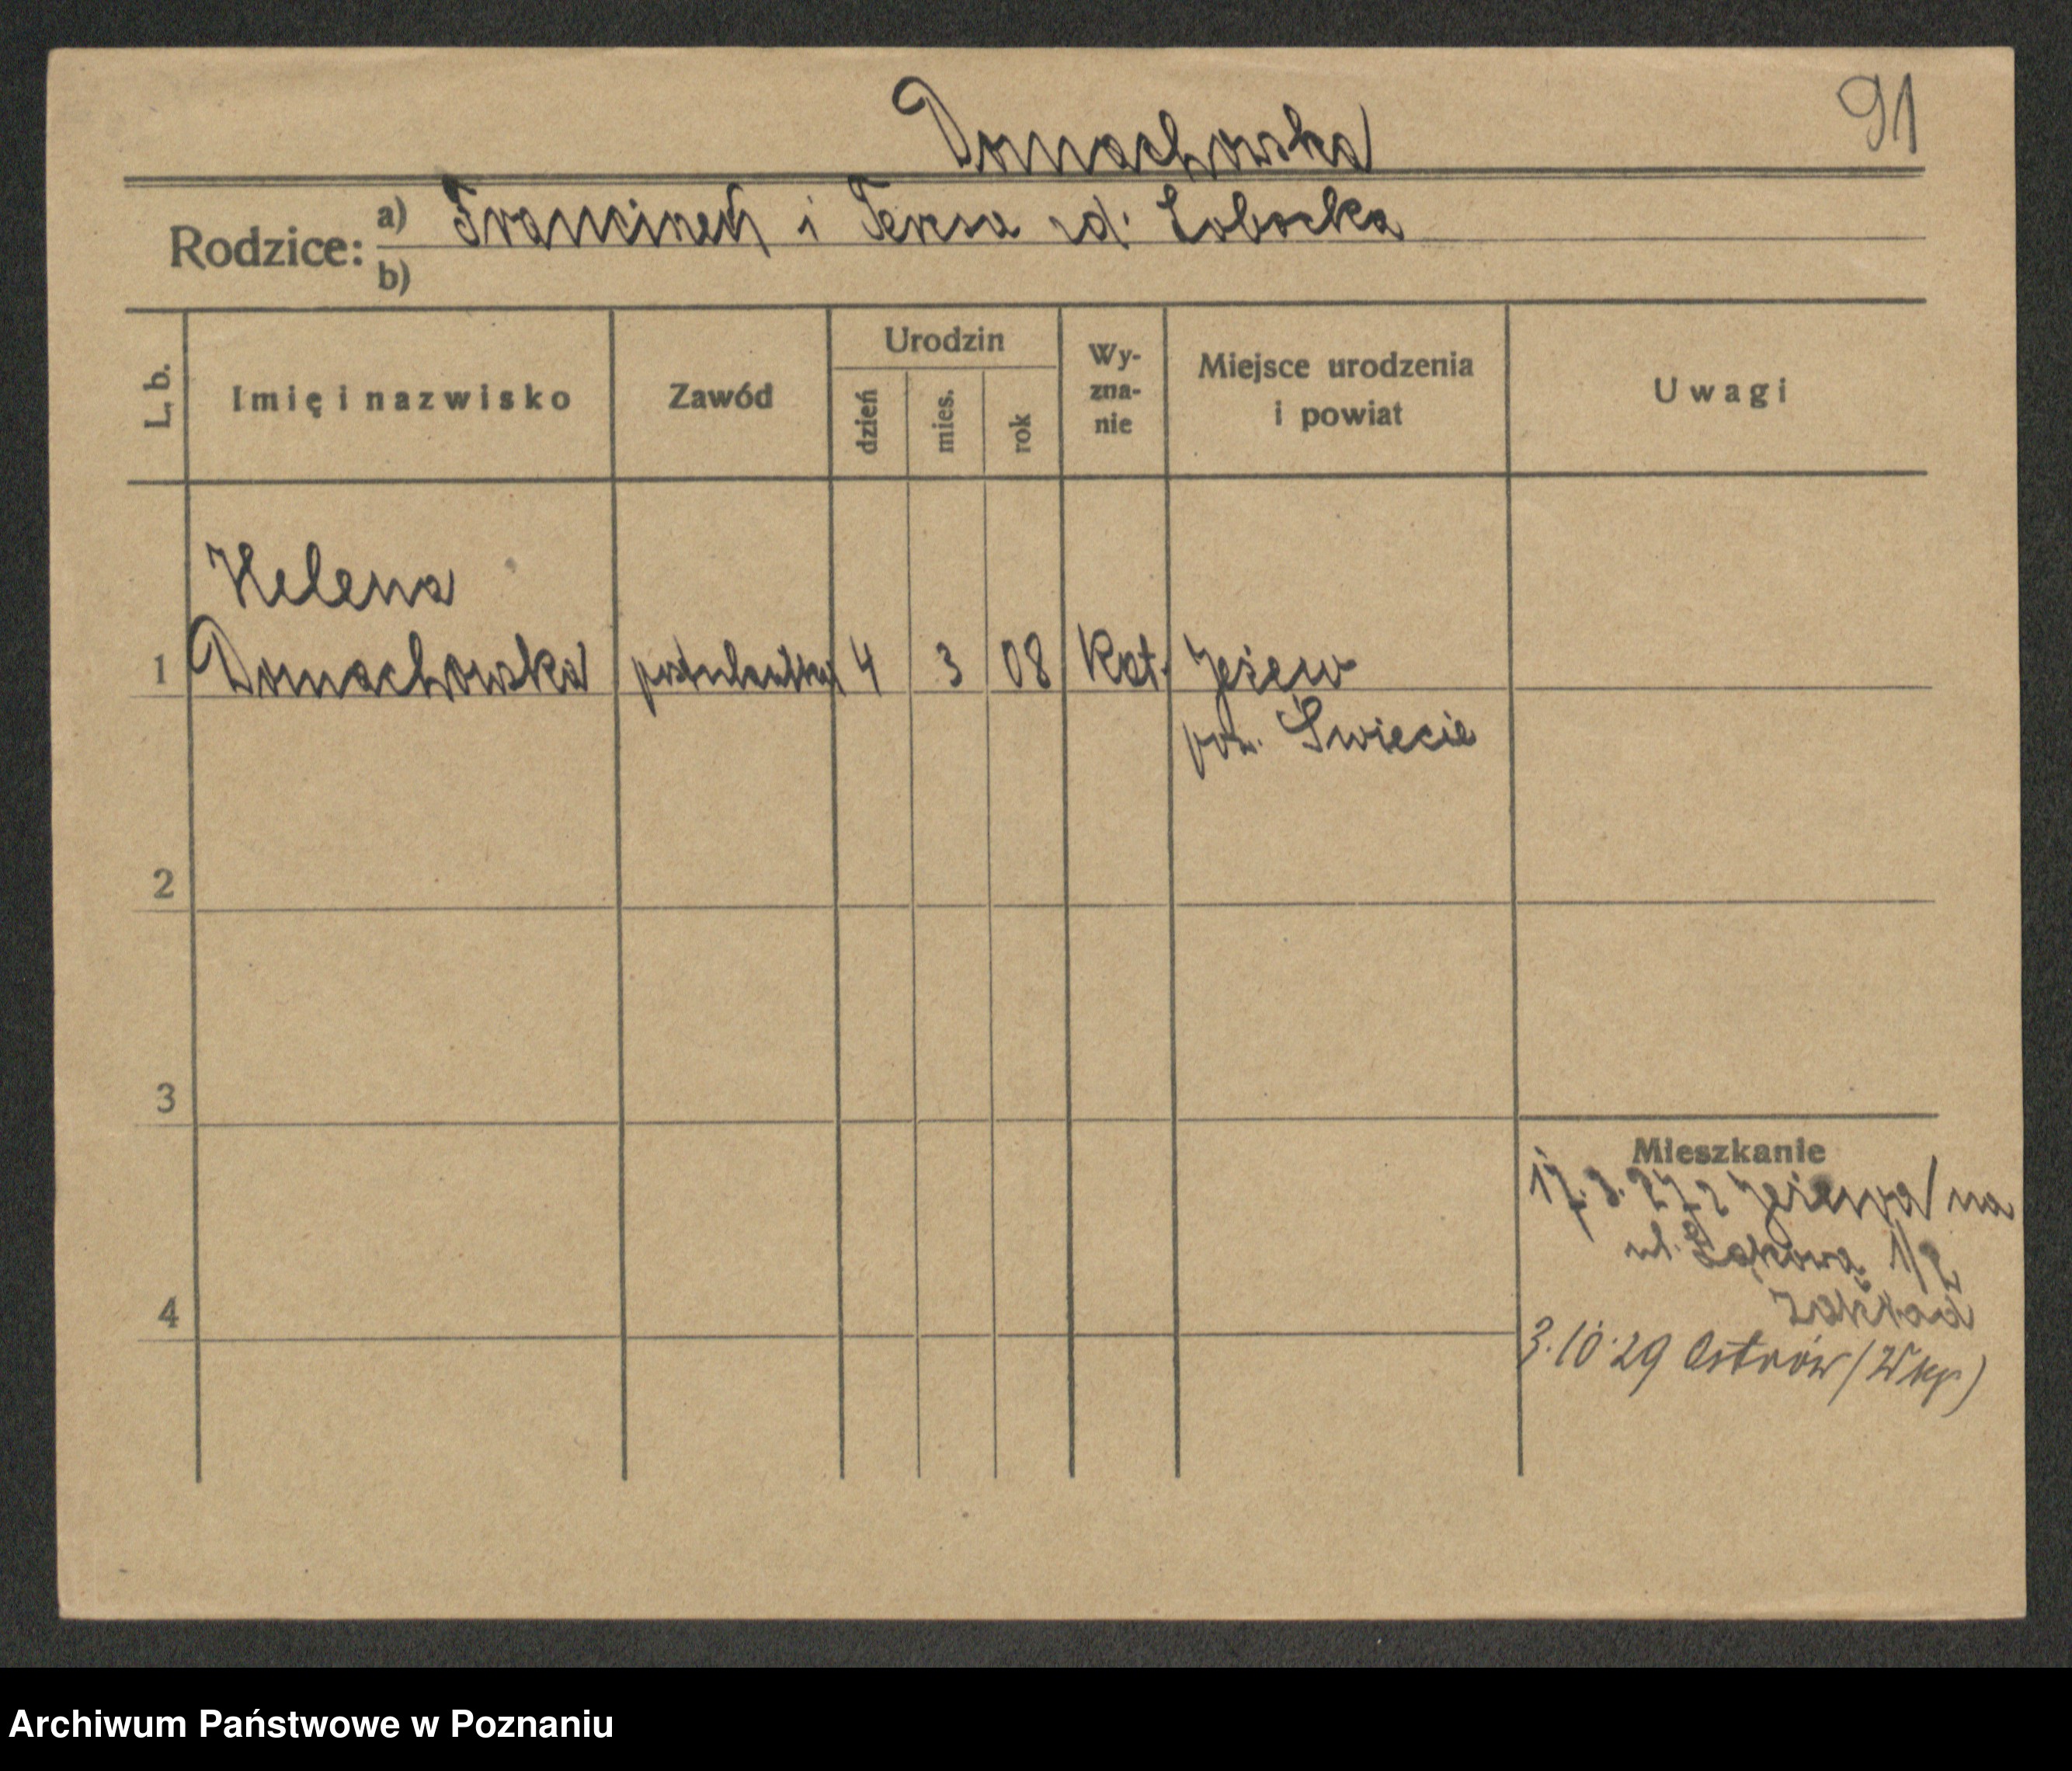 Domachowska
91
Rodzice: a) Franciszek i Teresa zd. Łobocka
b)
L. b.
Imię i nazwisko
Zawód
Urodzin
dzień
mies.
rok
Wy-
zna-
nie
Miejsce urodzenia
i powiat
Uwagi
Helena
1 Domachowska postulantka 4 3 08 Kat. Jeżew
pow. Świecie
2
3
4
Mieszkanie
17.3.27 z Jeżewa na
ul. Łąkową 1/2
Zakład
3.10.29 Ostrów (Wkp)
Archiwum Państwowe w Poznaniu